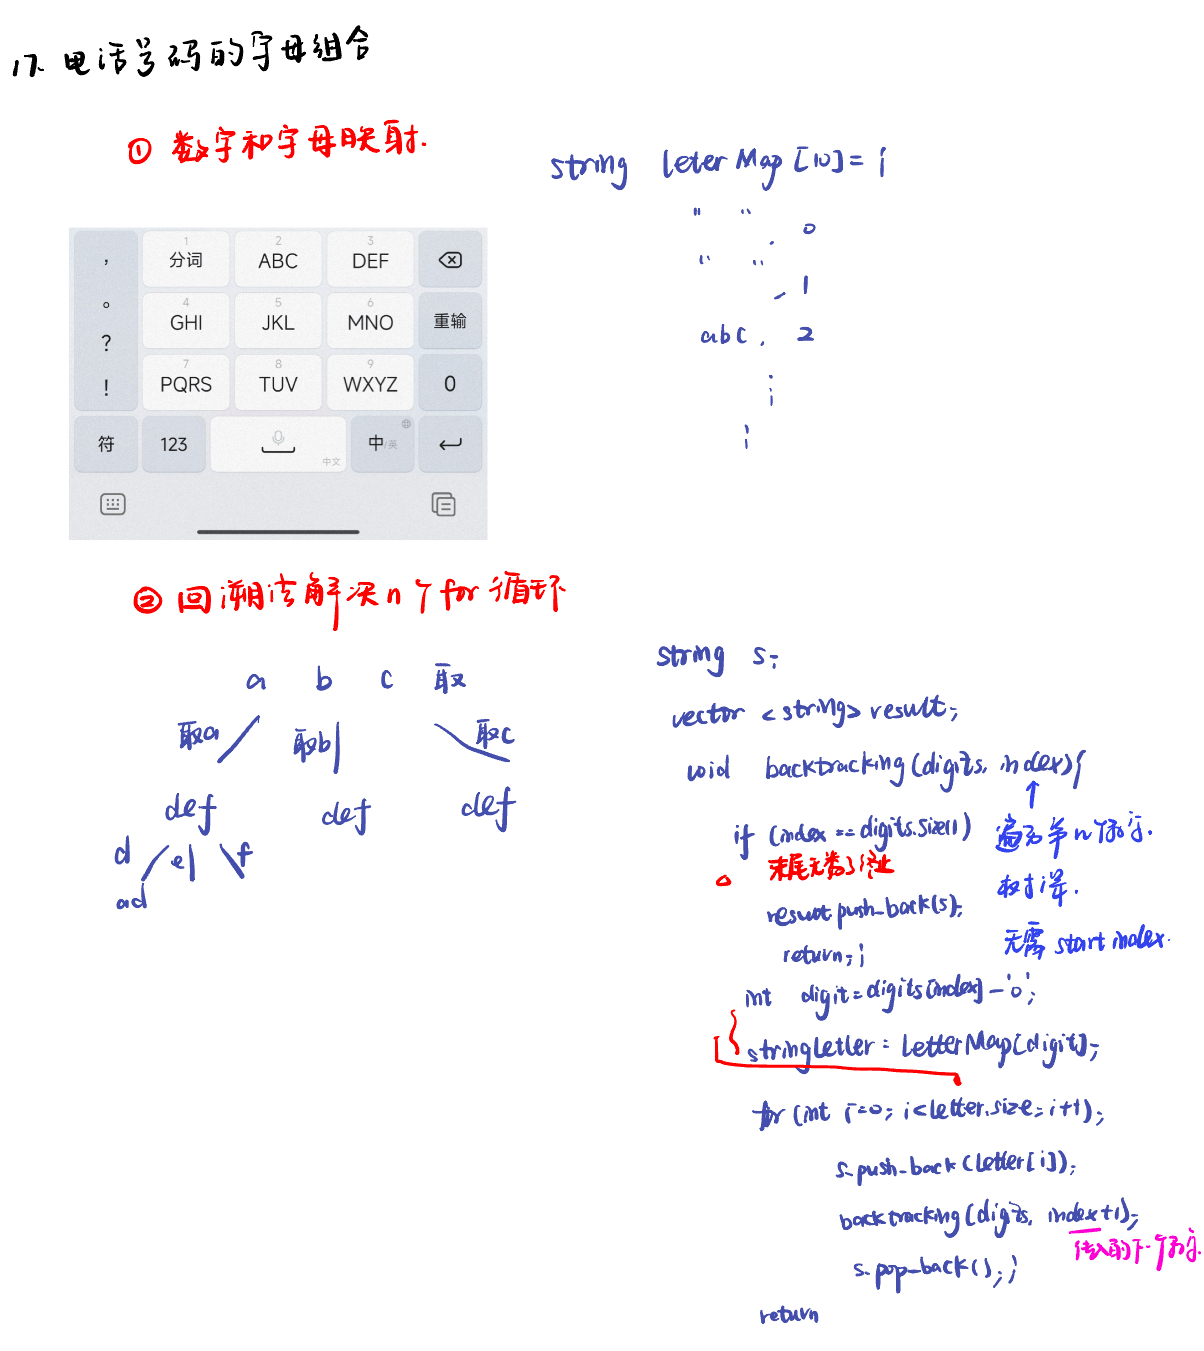 17. 电话号码的字母组合
① 数字和字母映射.
string leterMap[10]= {
" " , 0
" " , 1
abc , 2
, 。 ? !
1 分词
2 ABC
3 DEF
4 GHI
5 JKL
6 MNO
重输
7 PQRS
8 TUV
9 WXYZ
0
符
123
中文
中/英
② 回溯法解决n个for循环
a b c 取
取a 取b 取c
def def def
d e f
ad
string s;
vector <string> result;
void backtracking(digits, index){
if (index == digits.size())
遍历第n个数字.
末尾无数了终止
树深.
result push_back(s);
return;}
无需 start index.
int digit = digits[index] - '0';
string letter = letterMap[digit];
for (int i=0; i<letter.size; i+1);
s.push_back(letter[i]);
backtracking(digits, index+1);
传入的下一个数字.
s.pop_back();}
return